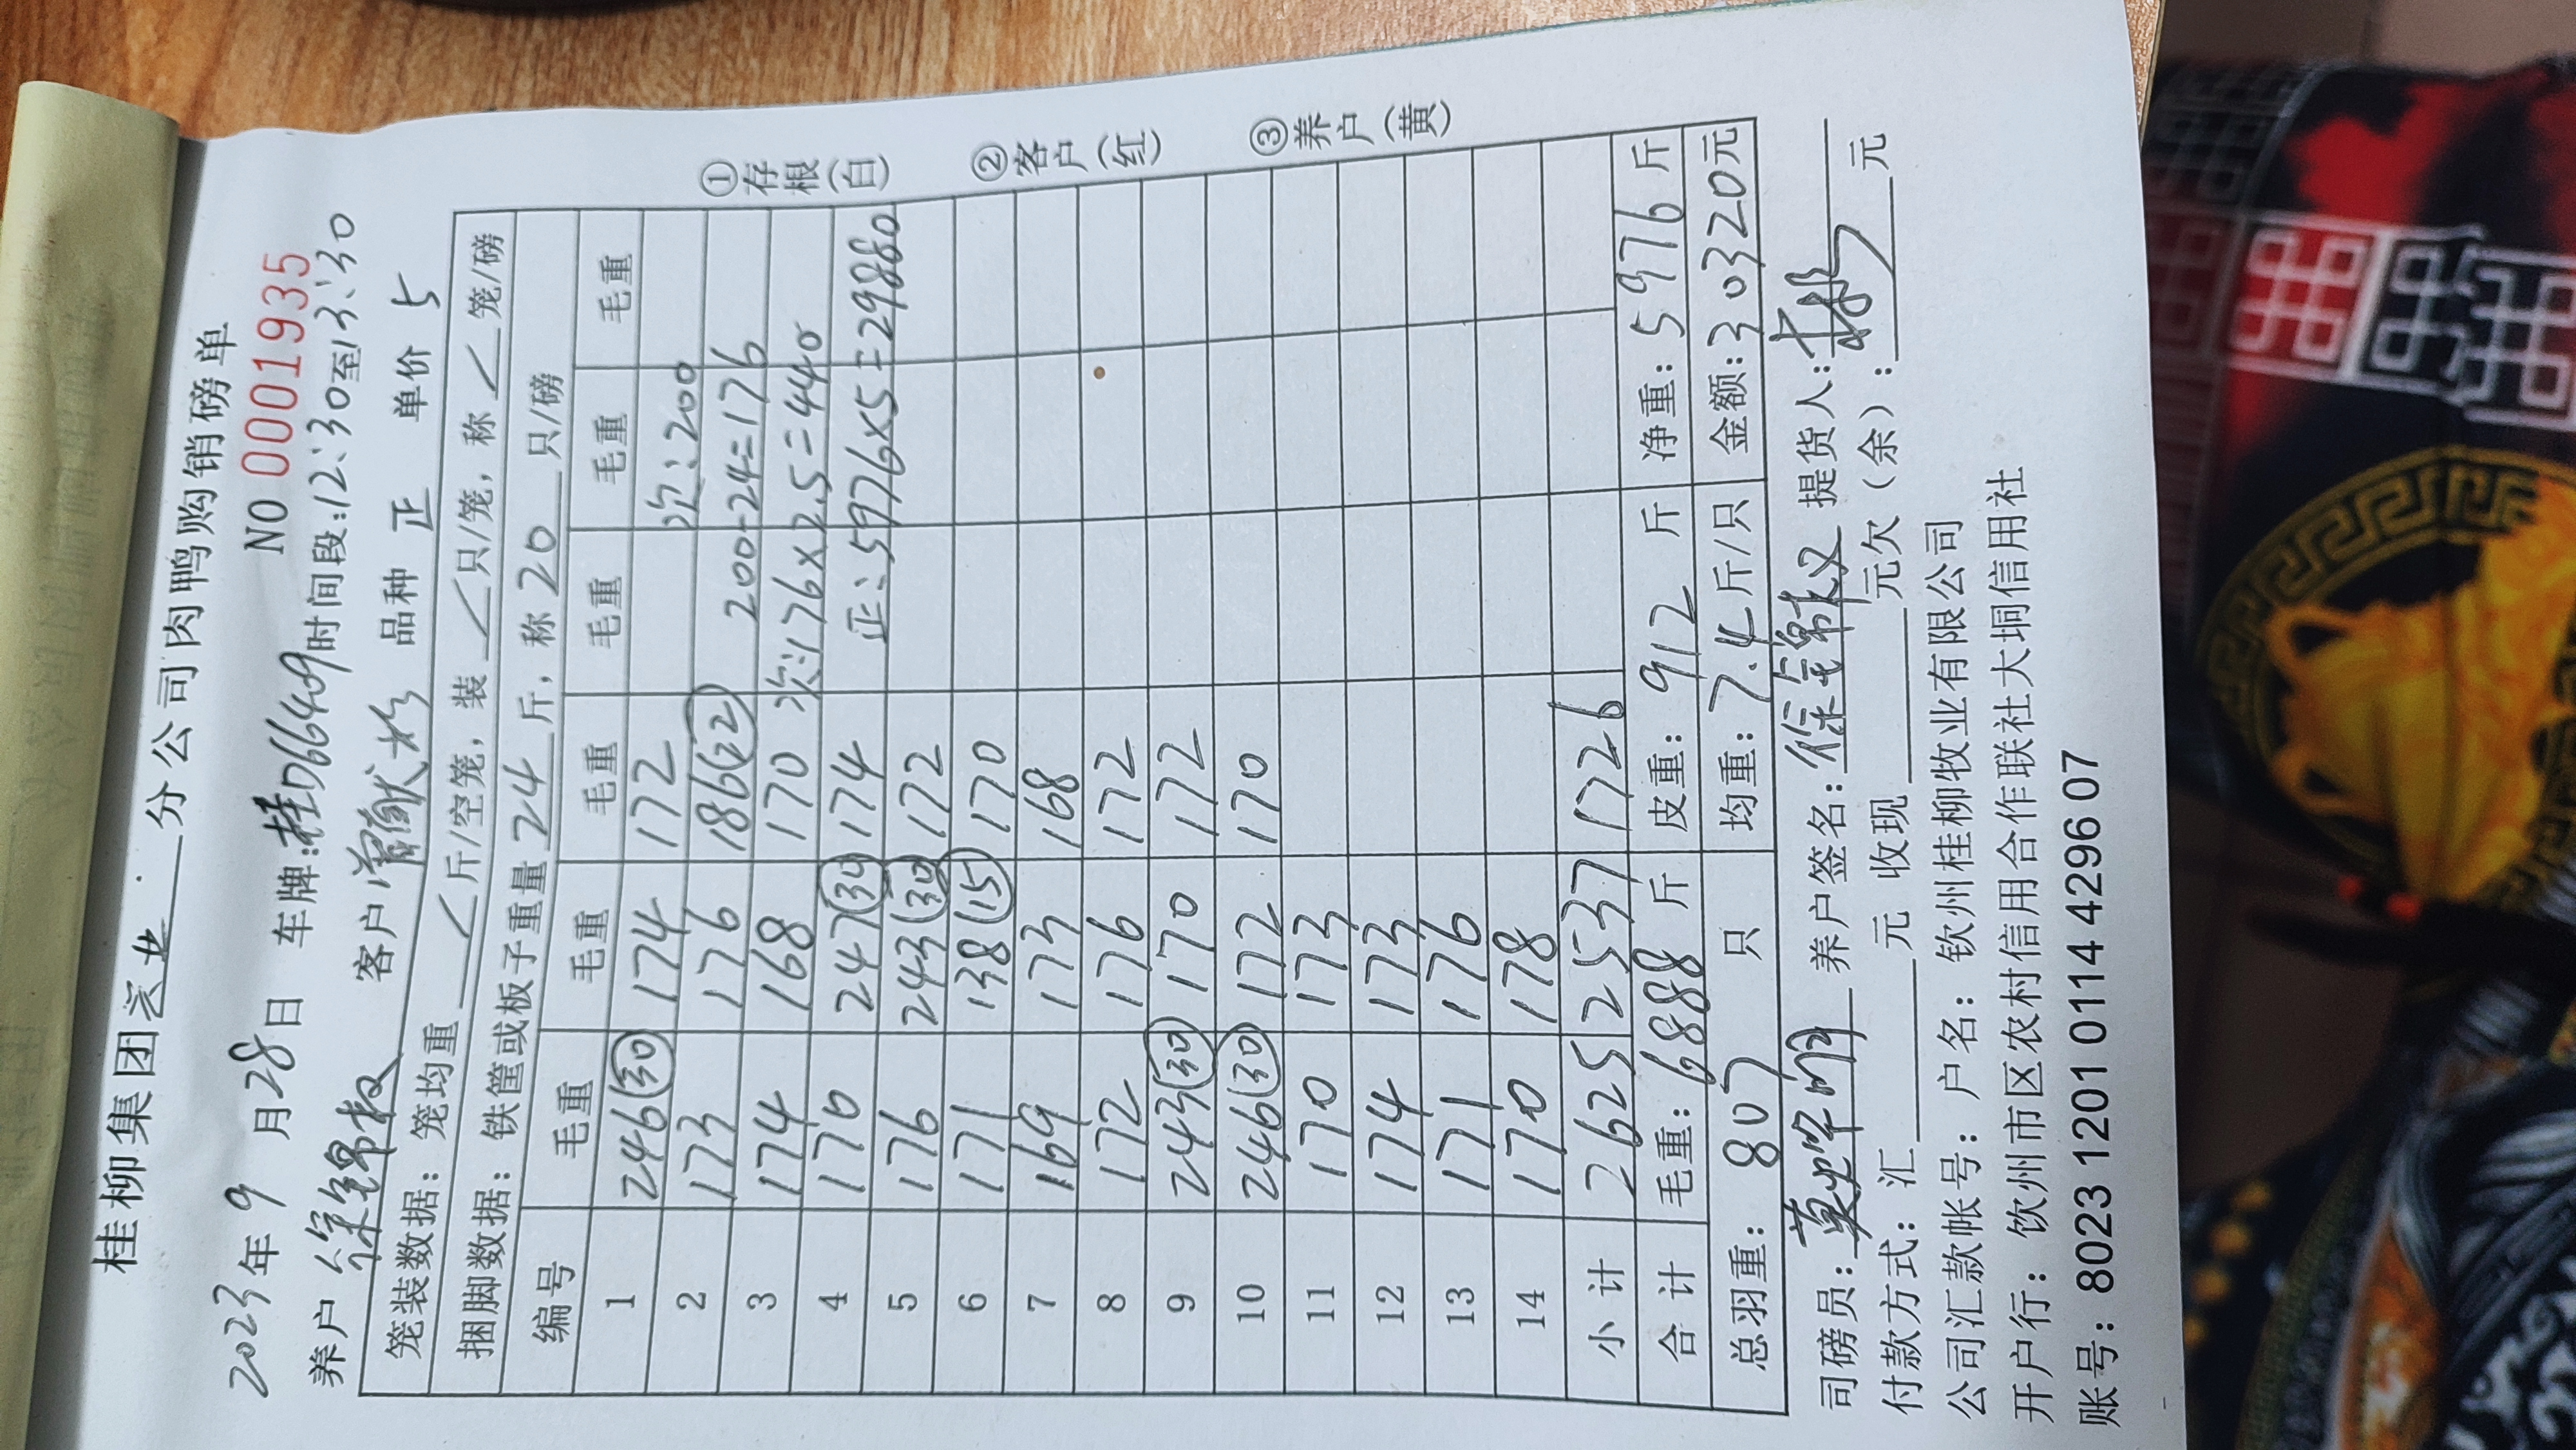 桂柳集团 分公司肉鸭购销磅单
NO 0001935
2023年9月28日 车牌:桂D66409时间段:12:30至13:30
养户 徐锦权 客户 曾献 品种 正 单价 5
笼装数据: 笼均重 / 斤/空笼, 装 / 只/笼, 称 / 笼/磅
捆脚数据: 铁筐或板子重量 24 斤, 称 20 只/磅
编号 毛重 毛重 毛重 毛重 毛重 毛重
1 246(30) 174 172 次:200
2 173 176 186(22) 200-24=176
3 174 168 170 次:176×2.5=440
4 176 247(30) 174 正:5976×5=29880
5 176 243(30) 172
6 171 138(15) 170
7 169 173 168
8 172 176 172
9 243(30) 170 172
10 246(30) 172 170
11 170 173
12 174 173
13 171 176
14 170 178
小计 2625 2537 1726
合计 毛重: 6888 斤 皮重: 912 斤 净重: 5976 斤
总羽重: 807 只 均重: 7.4 斤/只 金额: 30320元
①存根(白)
②客户(红)
③养户(黄)
司磅员: 莫 养户签名: 徐锦权 提货人:
付款方式: 汇 元 收现 元欠(余): 元
公司汇款帐号: 户名: 钦州桂柳牧业有限公司
开户行: 饮州市区农村信用合作联社大垌信用社
账号: 8023 1201 0114 4296 07